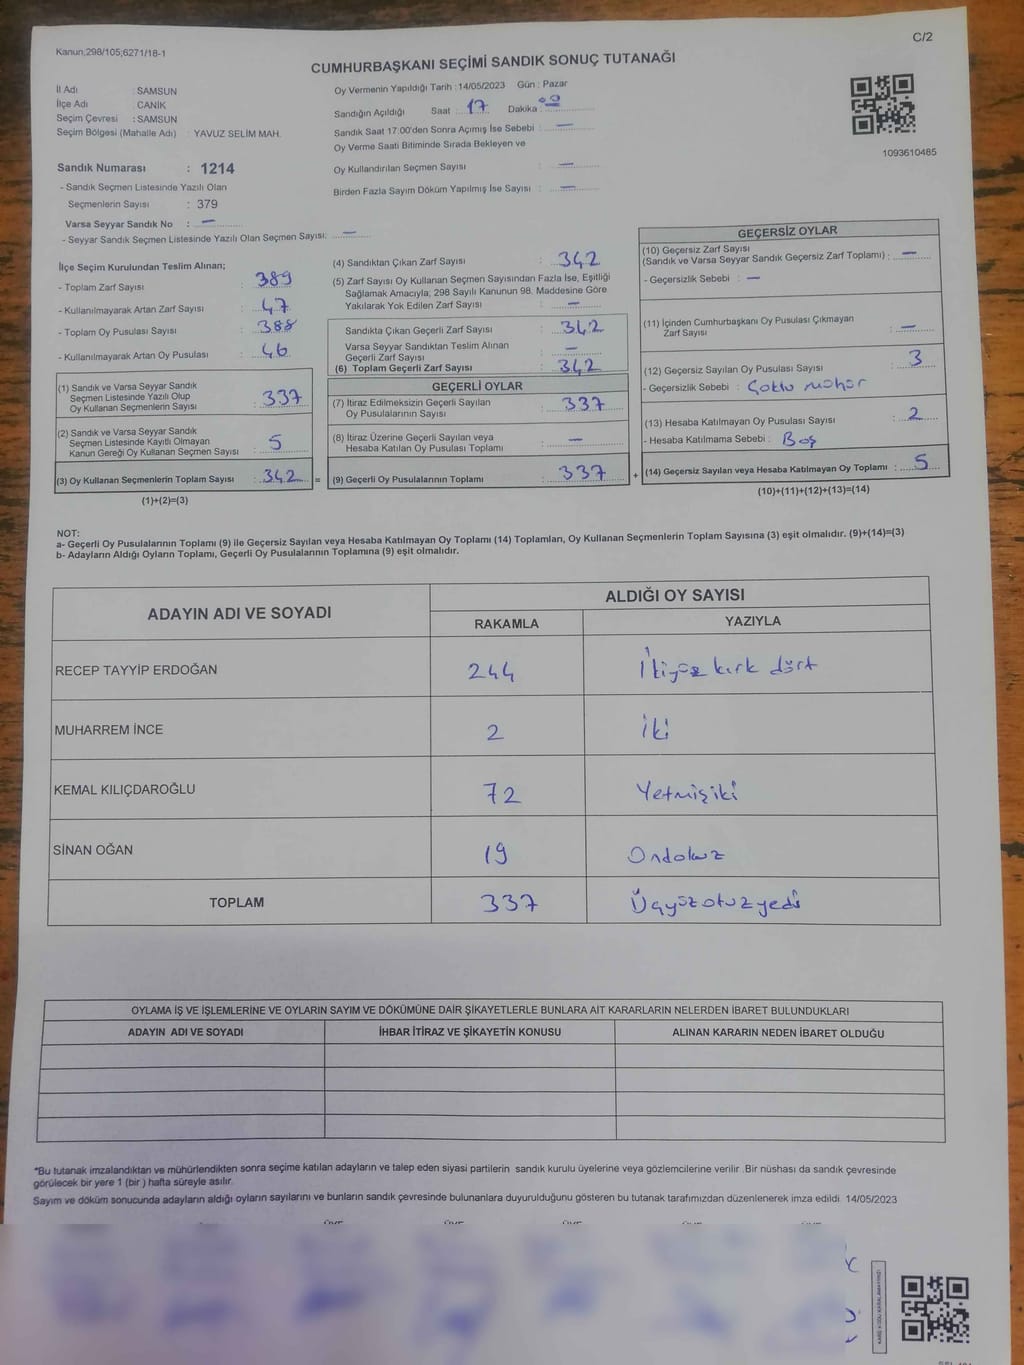 Kanun,298/105;6271/18-1
C/2
CUMHURBAŞKANI SEÇİMİ SANDIK SONUÇ TUTANAĞI
İl Adı : SAMSUN
İlçe Adı : CANİK
Seçim Çevresi : SAMSUN
Seçim Bölgesi (Mahalle Adı) : YAVUZ SELİM MAH.
Sandık Numarası : 1214
- Sandık Seçmen Listesinde Yazılı Olan
Seçmenlerin Sayısı : 379
Varsa Seyyar Sandık No : —
- Seyyar Sandık Seçmen Listesinde Yazılı Olan Seçmen Sayısı: —
Oy Vermenin Yapıldığı Tarih :14/05/2023 Gün : Pazar
Sandığın Açıldığı Saat : 17 Dakika : 00
Sandık Saat 17.00'den Sonra Açımış İse Sebebi : —
Oy Verme Saati Bitiminde Sırada Bekleyen ve
Oy Kullandırılan Seçmen Sayısı : —
Birden Fazla Sayım Döküm Yapılmış İse Sayısı : —
1093610485
İlçe Seçim Kurulundan Teslim Alınan;
- Toplam Zarf Sayısı : 389
- Kullanılmayarak Artan Zarf Sayısı : 47
- Toplam Oy Pusulası Sayısı : 388
- Kullanılmayarak Artan Oy Pusulası : 46
(1) Sandık ve Varsa Seyyar Sandık
Seçmen Listesinde Yazılı Olup
Oy Kullanan Seçmenlerin Sayısı : 337
(2) Sandık ve Varsa Seyyar Sandık
Seçmen Listesinde Kayıtlı Olmayan
Kanun Gereği Oy Kullanan Seçmen Sayısı : 5
(3) Oy Kullanan Seçmenlerin Toplam Sayısı : 342 =
(1)+(2)=(3)
(4) Sandıktan Çıkan Zarf Sayısı : 342
(5) Zarf Sayısı Oy Kullanan Seçmen Sayısından Fazla İse, Eşitliği
Sağlamak Amacıyla; 298 Sayılı Kanunun 98. Maddesine Göre
Yakılarak Yok Edilen Zarf Sayısı : —
Sandıkta Çıkan Geçerli Zarf Sayısı : 342
Varsa Seyyar Sandıktan Teslim Alınan
Geçerli Zarf Sayısı : —
(6) Toplam Geçerli Zarf Sayısı : 342
GEÇERLİ OYLAR
(7) İtiraz Edilmeksizin Geçerli Sayılan
Oy Pusulalarının Sayısı : 337
(8) İtiraz Üzerine Geçerli Sayılan veya
Hesaba Katılan Oy Pusulası Toplamı : —
(9) Geçerli Oy Pusulalarının Toplamı : 337 +
GEÇERSİZ OYLAR
(10) Geçersiz Zarf Sayısı
(Sandık ve Varsa Seyyar Sandık Geçersiz Zarf Toplamı) : —
- Geçersizlik Sebebi : —
(11) İçinden Cumhurbaşkanı Oy Pusulası Çıkmayan
Zarf Sayısı : —
(12) Geçersiz Sayılan Oy Pusulası Sayısı : 3
- Geçersizlik Sebebi : Çoklu mühür
(13) Hesaba Katılmayan Oy Pusulası Sayısı : 2
- Hesaba Katılmama Sebebi : Boş
(14) Geçersiz Sayılan veya Hesaba Katılmayan Oy Toplamı : 5
(10)+(11)+(12)+(13)=(14)
NOT:
a- Geçerli Oy Pusulalarının Toplamı (9) ile Geçersiz Sayılan veya Hesaba Katılmayan Oy Toplamı (14) Toplamları, Oy Kullanan Seçmenlerin Toplam Sayısına (3) eşit olmalıdır. (9)+(14)=(3)
b- Adayların Aldığı Oyların Toplamı, Geçerli Oy Pusulalarının Toplamına (9) eşit olmalıdır.
ADAYIN ADI VE SOYADI
ALDIĞI OY SAYISI
RAKAMLA YAZIYLA
RECEP TAYYİP ERDOĞAN 244 İkiyüz kırk dört
MUHARREM İNCE 2 İki
KEMAL KILIÇDAROĞLU 72 Yetmişiki
SİNAN OĞAN 19 Ondokuz
TOPLAM 337 Üçyüzotuzyedi
OYLAMA İŞ VE İŞLEMLERİNE VE OYLARIN SAYIM VE DÖKÜMÜNE DAİR ŞİKAYETLERLE BUNLARA AİT KARARLARIN NELERDEN İBARET BULUNDUKLARI
ADAYIN ADI VE SOYADI İHBAR İTİRAZ VE ŞİKAYETİN KONUSU ALINAN KARARIN NEDEN İBARET OLDUĞU
*Bu tutanak imzalandıktan ve mühürlendikten sonra seçime katılan adayların ve talep eden siyasi partilerin sandık kurulu üyelerine veya gözlemcilerine verilir .Bir nüshası da sandık çevresinde
görülecek bir yere 1 (bir ) hafta süreyle asılır.
Sayım ve döküm sonucunda adayların aldığı oyların sayılarını ve bunların sandık çevresinde bulunanlara duyurulduğunu gösteren bu tutanak tarafımızdan düzenlenerek imza edildi. 14/05/2023